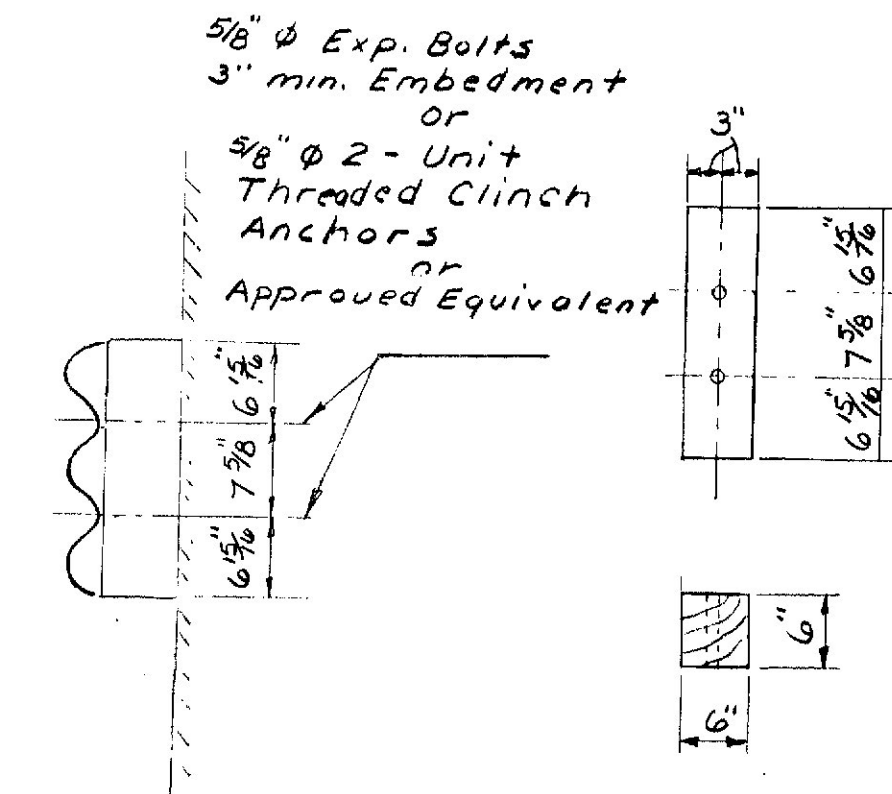 5/8" φ Exp. Bolts
3" min. Embedment
or
5/8" φ 2 - Unit
Threaded Clinch
Anchors
or
Approved Equivalent
6 15/16"
7 5/8"
6 15/16"
3"
6 15/16"
7 5/8"
6 15/16
6"
6"